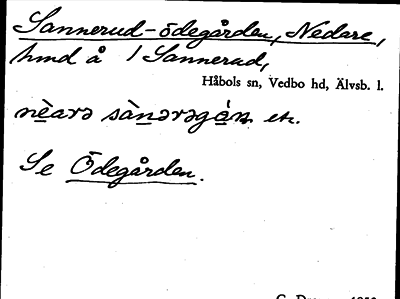 Sannerud-ödegården, Nedare,
hmd å 1 Sannerud,
Håbols sn, Vedbo hd, Älvsb. l.
etc.
Se Ödegården.